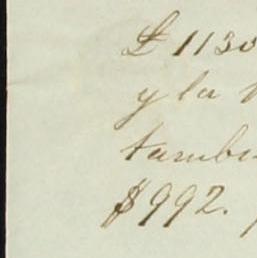 £ 1130
y la
tambi
$992.